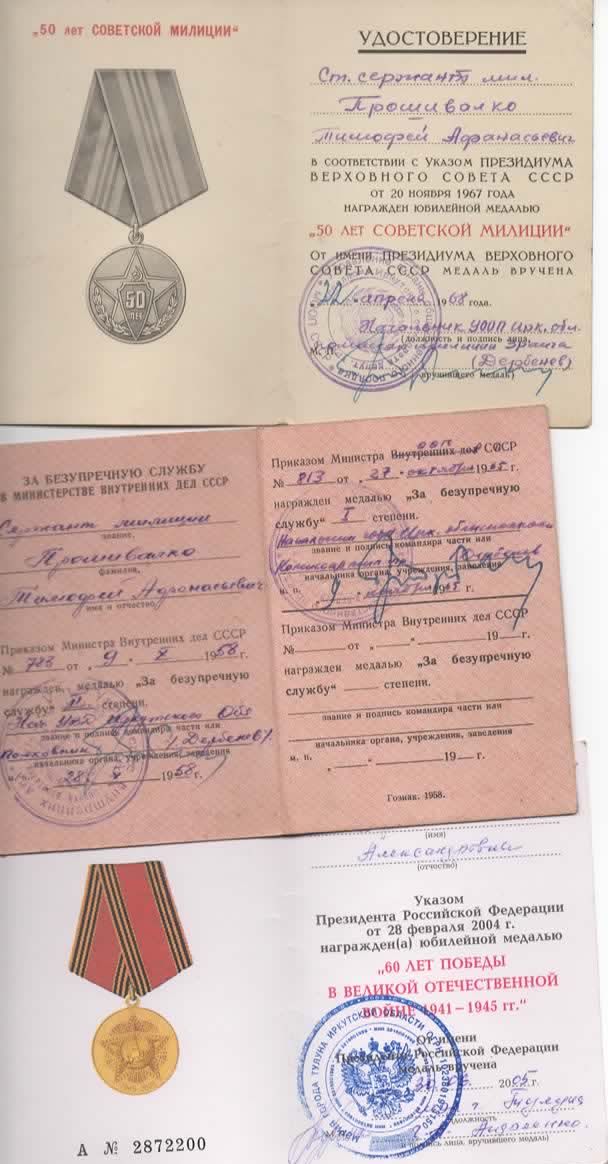 „50 лет СОВЕТСКОЙ МИЛИЦИИ“
УДОСТОВЕРЕНИЕ
Ст. сержант мил.
Прошивалко
Тимофей Афанасьевич
В СООТВЕТСТВИИ С УКАЗОМ ПРЕЗИДИУМА
ВЕРХОВНОГО СОВЕТА СССР
ОТ 20 НОЯБРЯ 1967 ГОДА
НАГРАЖДЕН ЮБИЛЕЙНОЙ МЕДАЛЬЮ
„50 ЛЕТ СОВЕТСКОЙ МИЛИЦИИ“
ОТ ИМЕНИ ПРЕЗИДИУМА ВЕРХОВНОГО
СОВЕТА СССР МЕДАЛЬ ВРУЧЕНА
„22“ апреля 1968 года.
Начальник УООП Ирк. обл.
(должность и подпись лица,
М. П.
(Дербенев)
вручившего медаль)
50
ЛЕТ
ЗА БЕЗУПРЕЧНУЮ СЛУЖБУ
В МИНИСТЕРСТВЕ ВНУТРЕННИХ ДЕЛ СССР
Сержант милиции
звание,
Прошивалко
фамилия,
Тимофей Афанасьевич
имя и отчество
Приказом Министра Внутренних дел СССР
№ 788 от „9“ V 1958 г.
награжден медалью „За безупречную
службу“ II степени.
Нач УВД Иркутского Обл
звание и подпись командира части или
Полковник (Дербенев)
начальника органа, учреждения, заведения
м. п. „28“ V 1958 г.
ооп
Приказом Министра Внутренних дел СССР
№ 813 от „27“ октября 1965 г.
награжден медалью „За безупречную
службу“ I степени.
звание и подпись командира части или
начальника органа, учреждения, заведения
м. п. „9“ ноября 1965 г.
Приказом Министра Внутренних дел СССР
№ от „ “ 19 г.
награжден медалью „За безупречную
службу“ степени.
звание и подпись командира части или
начальника органа, учреждения, заведения
м. п. „ “ 19 г.
Гознак. 1958.
(имя)
Александрович
(отчество)
Указом
Президента Российской Федерации
от 28 февраля 2004 г.
награжден(а) юбилейной медалью
„60 ЛЕТ ПОБЕДЫ
В ВЕЛИКОЙ ОТЕЧЕСТВЕННОЙ
ВОЙНЕ 1941–1945 гг.“
От имени
Президента Российской Федерации
медаль вручена
2005 г.
должность
и подпись лица, вручившего медаль)
А № 2872200